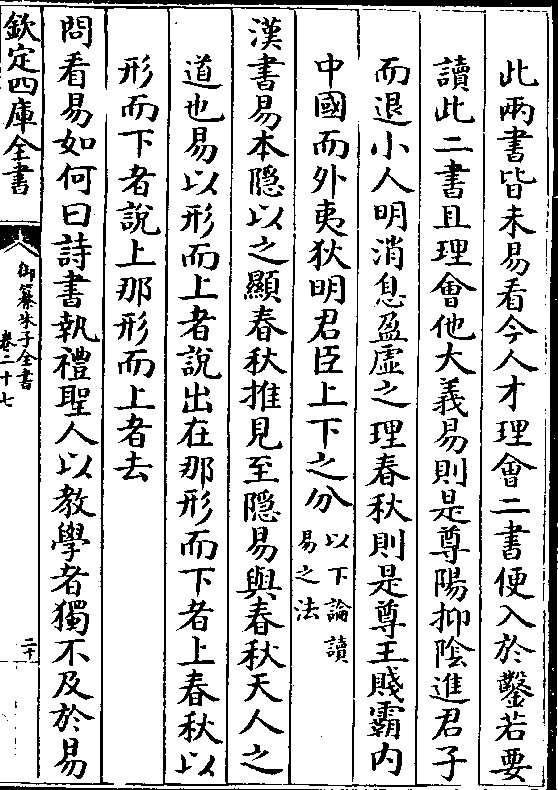 此兩書皆未易看今人才理會二書便入於鑿若要
讀此二書且理會他大義易則是尊陽抑陰進君子
而退小人明消息盈虛之理春秋則是尊王賤霸内
中國而外夷狄明君臣上下之分以下論讀
易之法
漢書易本隱以之顯春秋推見至隱易與春秋天人之
道也易以形而上者說出在那形而下者上春秋以
形而下者說上那形而上者去
問看易如何曰詩書執禮聖人以教學者獨不及於易
欽定四庫全書
御纂朱子全書
卷二十七
二十